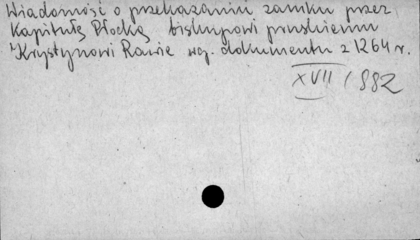 Wiadomość o przekazaniu zamku przez
Kapitułę Płocką biskupowi pruskiemu
Krystynowi Rawie wg. dokumentu z 1264 r.
XVII / 882